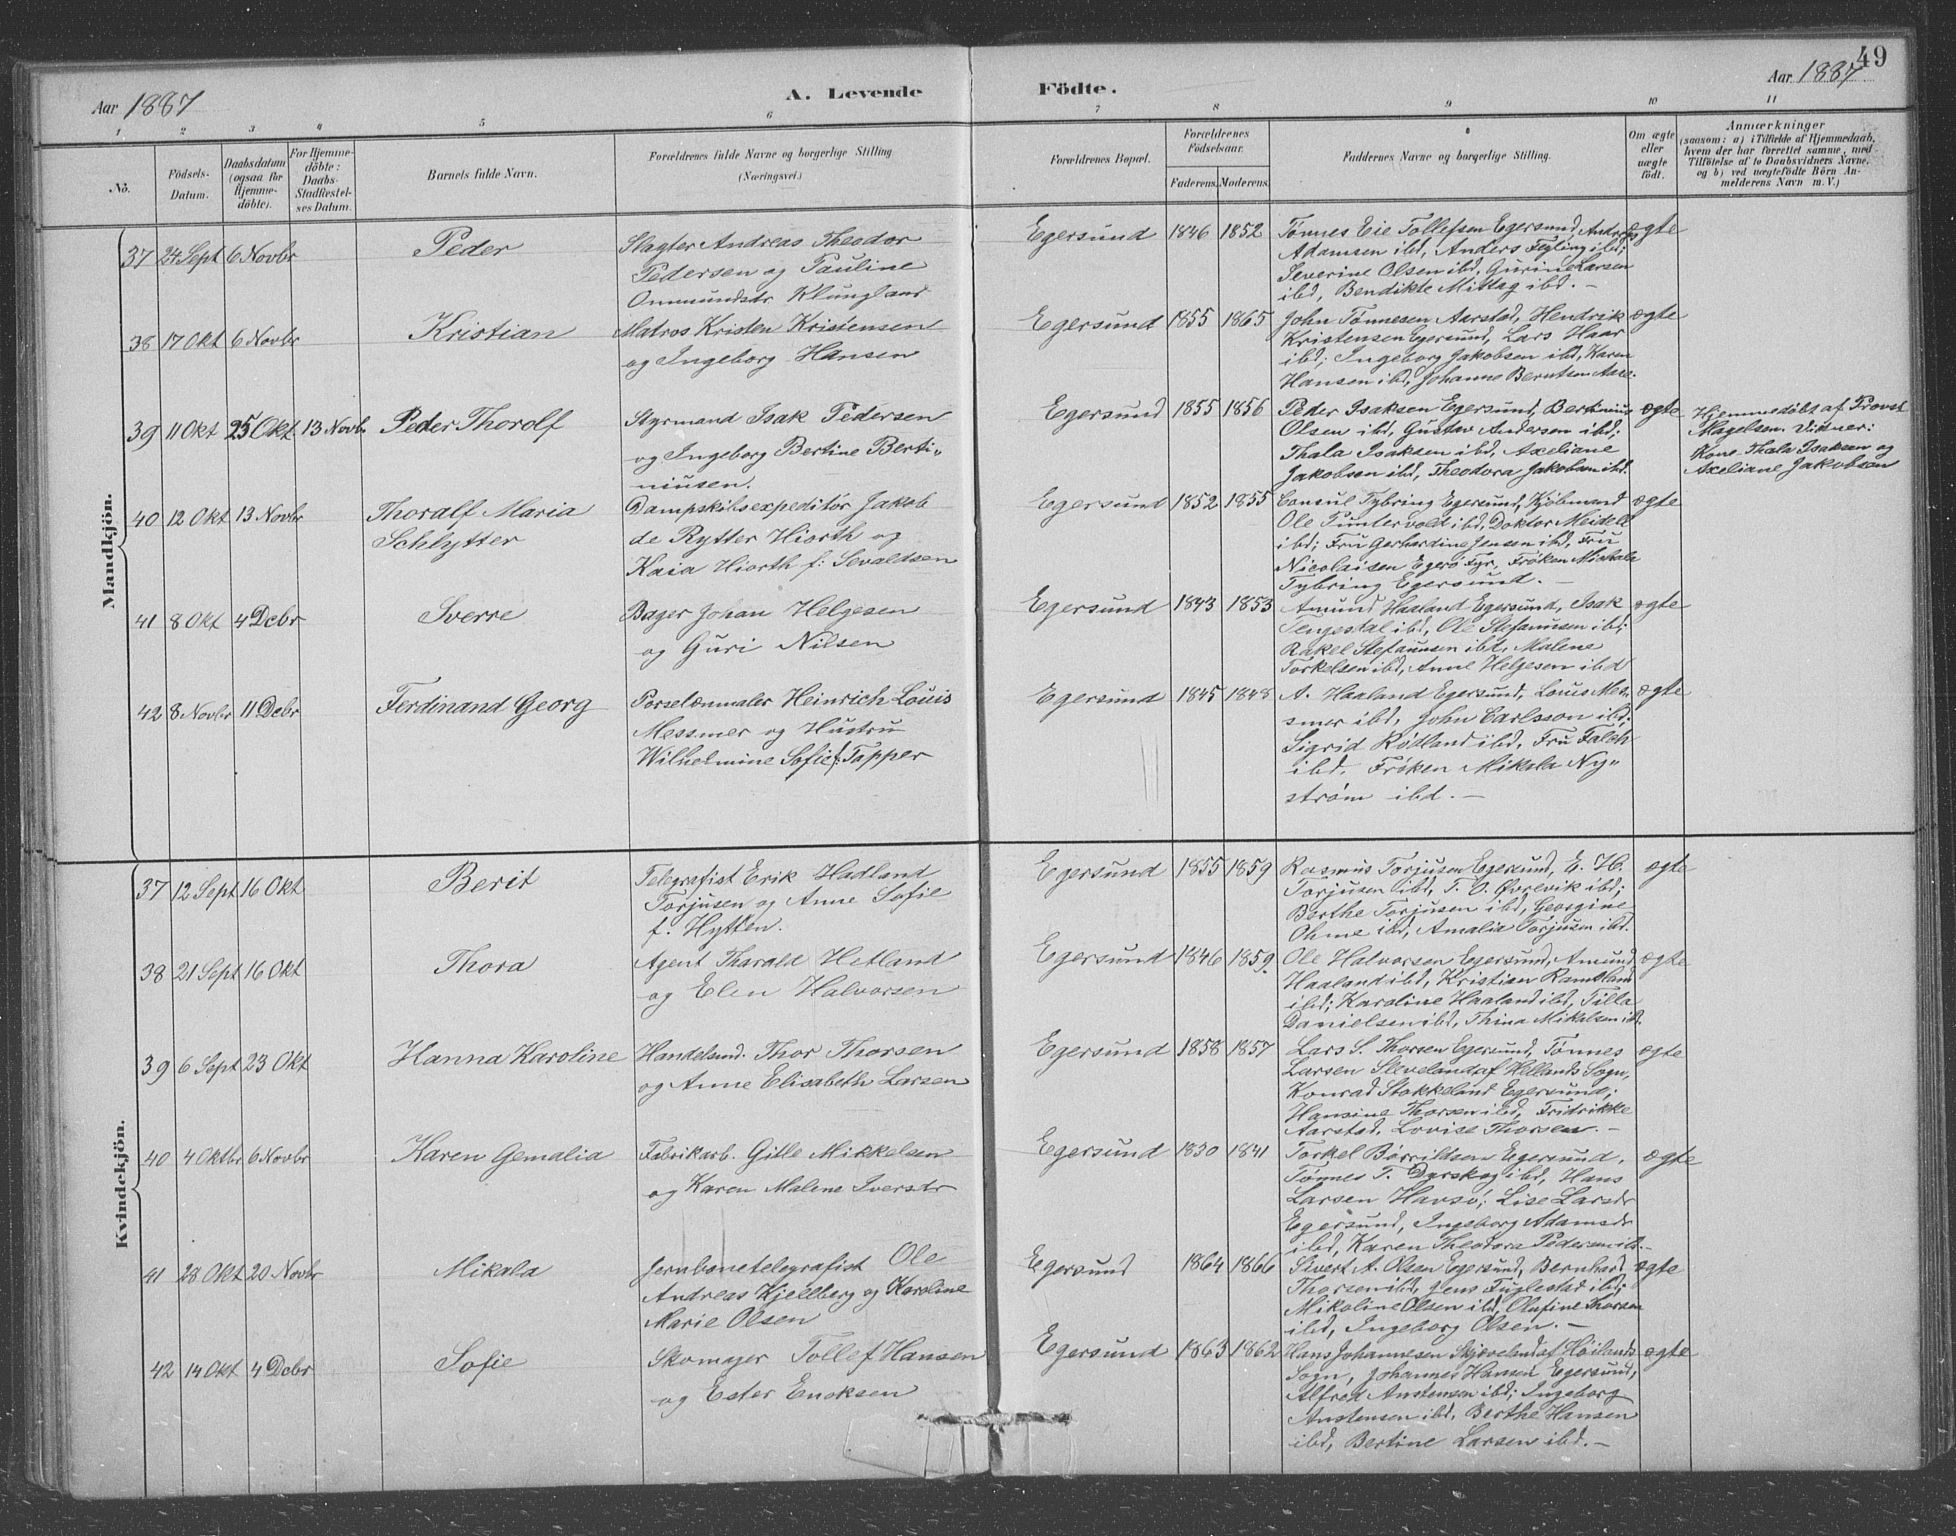 49
Aar 1887 A. Levende Födte. Aar 1887
1 2 3 4 5 6 7 8 9 10 11
No.
Födsels-Datum.
Daabsdatum (ogsaa for Hjemmedöbte).
For Hjemmedöbte: Daabs-Stadfæstelses Datum.
Barnets fulde Navn.
Forældrenes fulde Navne og borgerlige Stilling (Næringsvei.)
Forældrenes Bopæl.
Forældrenes Födselsaar.
Faderens. Moderens.
Faddernes Navne og borgerlige Stilling.
Om ægte eller uægte födt.
Anmærkninger
(saasom: a) i Tilfælde af Hjemmedaab,
hvem der har forrettet samme, med
Tilföielse af to Daabsvidners Navne.
og b) ved uægtefödte Börn An-
melderens Navn m. V.)
Mandkjön.
37 24 Sept 6 Novbr Peder
Slagter Andreas Theodor
Pedersen og Pauline
Ommundsdr Klungland
Egersund 1846 1852
Tønnes Eie Tollefsen Egersund, Andreas
Adamsen ibd, Anders Fejling ibd;
Severine Olsen ibd, Gurine Larsen
ibd, Bendikte Mittag ibd. —
ægte
38 17 Okt 6 Novbr Kristian
Matros Kristen Kristensen
og Ingeborg Hansen
Egersund 1855 1865
John Tønnesen Aarstad, Hendrik
Kristensen Egersund, Lars Haar
ibd; Ingeborg Jakobsen ibd, Karen
Hansen ibd, Johanne Berntsen Aase.
ægte
39 11 Okt 25 Okt 13 Novb. Peder Thorolf
Styrmand Isak Pedersen
og Ingeborg Bertine Berti„
niusen.
Egersund 1855 1856
Peder Isaksen Egersund, Bertinius
Olsen ibd, Gustav Andersen ibd;
Thala Isaksen ibd, Axeliane
Jakobsen ibd, Theodora Jakobsen ibd.
ægte
Hjemmedöbt af Provst
Magelsen. Vidner:
Kone Thala Isaksen og
Axeliane Jakobsen
40 12 Okt 13 Novbr Thoralf Maria
Schlytter
Dampskibsexpeditör Jakob
de Rytter Hiorth og
Kaia Hiorth f: Sevaldsen
Egersund 1852 1855
Consul Tybring Egersund, Kjöbmand
Ole Puntervold ibd, Doktor Meidell
ibd; Fru Gerhardine Jensen ibd, Fru
Nicolaisen Egerø Fyr, Frøken Mikala
Tybring Egersund. —
ægte
41 8 Okt 4 Debr Sverre
Bager Johan Helgesen
og Guri Nilsen
Egersund 1843 1853
Amund Haaland Egersund, Isak
Tengesdal ibd, Ole Stefanusen ibd;
Rakel Stefanusen ibd, Malene
Torkelsen ibd, Anne Helgesen ibd
ægte
42 8 Novbr 11 Debr Ferdinand Georg
Porselænmaler Heinrich Louis
Messmer og Hustru
Wilhelmine Sofie f. Tapper
Egersund 1845 1848
A. Haaland Egersund, Louis Mes-
smer ibd, John Carlsson ibd;
Sigrid Røtland ibd, Fru Falch
ibd, Frøken Mikala Ny„
strøm ibd. —
ægte
Kvindekjön.
37 12 Sept 16 Okt Berit
Telegrafist Erik Hadland
Torjusen og Anne Sofie
f. Hytten.
Egersund 1855 1859
Rasmus Torjusen Egersund, E. H.
Torjusen ibd, T. O. Øvrevik ibd;
Berthe Torjusen ibd, Georgine
Ohme ibd, Amalia Torjusen ibd.
ægte
38 21 Sept 16 Okt Thora
Agent Tharald Hetland
og Elen Halvorsen
Egersund 1846 1859.
Ole Halvorsen Egersund, Amund
Haaland ibd, Kristian Ramsland
ibd; Karoline Haaland ibd, Tilla
Danielsen ibd, Thina Mikalsen ibd.
ægte
39 6 Sept 23 Okt Hanna Karoline
Handelsmd. Thor Thorsen
og Anne Elisabeth Larsen
Egersund 1858 1857
Lars S. Thorsen Egersund, Tønnes
Larsen Sleveland af Hellands Sogn,
Konrad Stokkeland Egersund;
Hansine Thorsen ibd, Fridrikke
Aarstad, Lovise Thorsen. —
ægte
40 4 Oktbr 6 Novbr Karen Gemalia
Fabrikarb. Gitle Mikkelsen
og Karen Malene Iversdr
Egersund 1830 1841
Torkel Børrildsen Egersund,
Tønnes T. Dyrskog ibd, Hans
Larsen Havsø; Lise Larsdr
Egersund, Ingeborg Adamsdr
ibd, Karen Theodora Pedersen ib. —
ægte
41 28 Okt 20 Novbr Mikala
Jernbanetelegrafist Ole
Andreas Kjellberg og Karoline
Marie Olsen
Egersund 1864 1866
Sivert A. Olsen Egersund, Bernhard
Thorsen ibd, Jens Fuglestad ibd;
Mikoline Olsen ibd, Olufine Thorsen
ibd, Ingeborg Olsen. —
ægte
42 14 Okt 4 Debr Sofie
Skomager Tollef Hansen
og Ester Enoksen
Egersund 1863 1862
Hans Johannesen Skjæveland af Høilands
Sogn, Johannes Hansen Egersund,
Alfred Anstensen ibd; Ingeborg
Anstensen ibd, Berthe Hansen
ibd, Bertine Larsen ibd. —
ægte